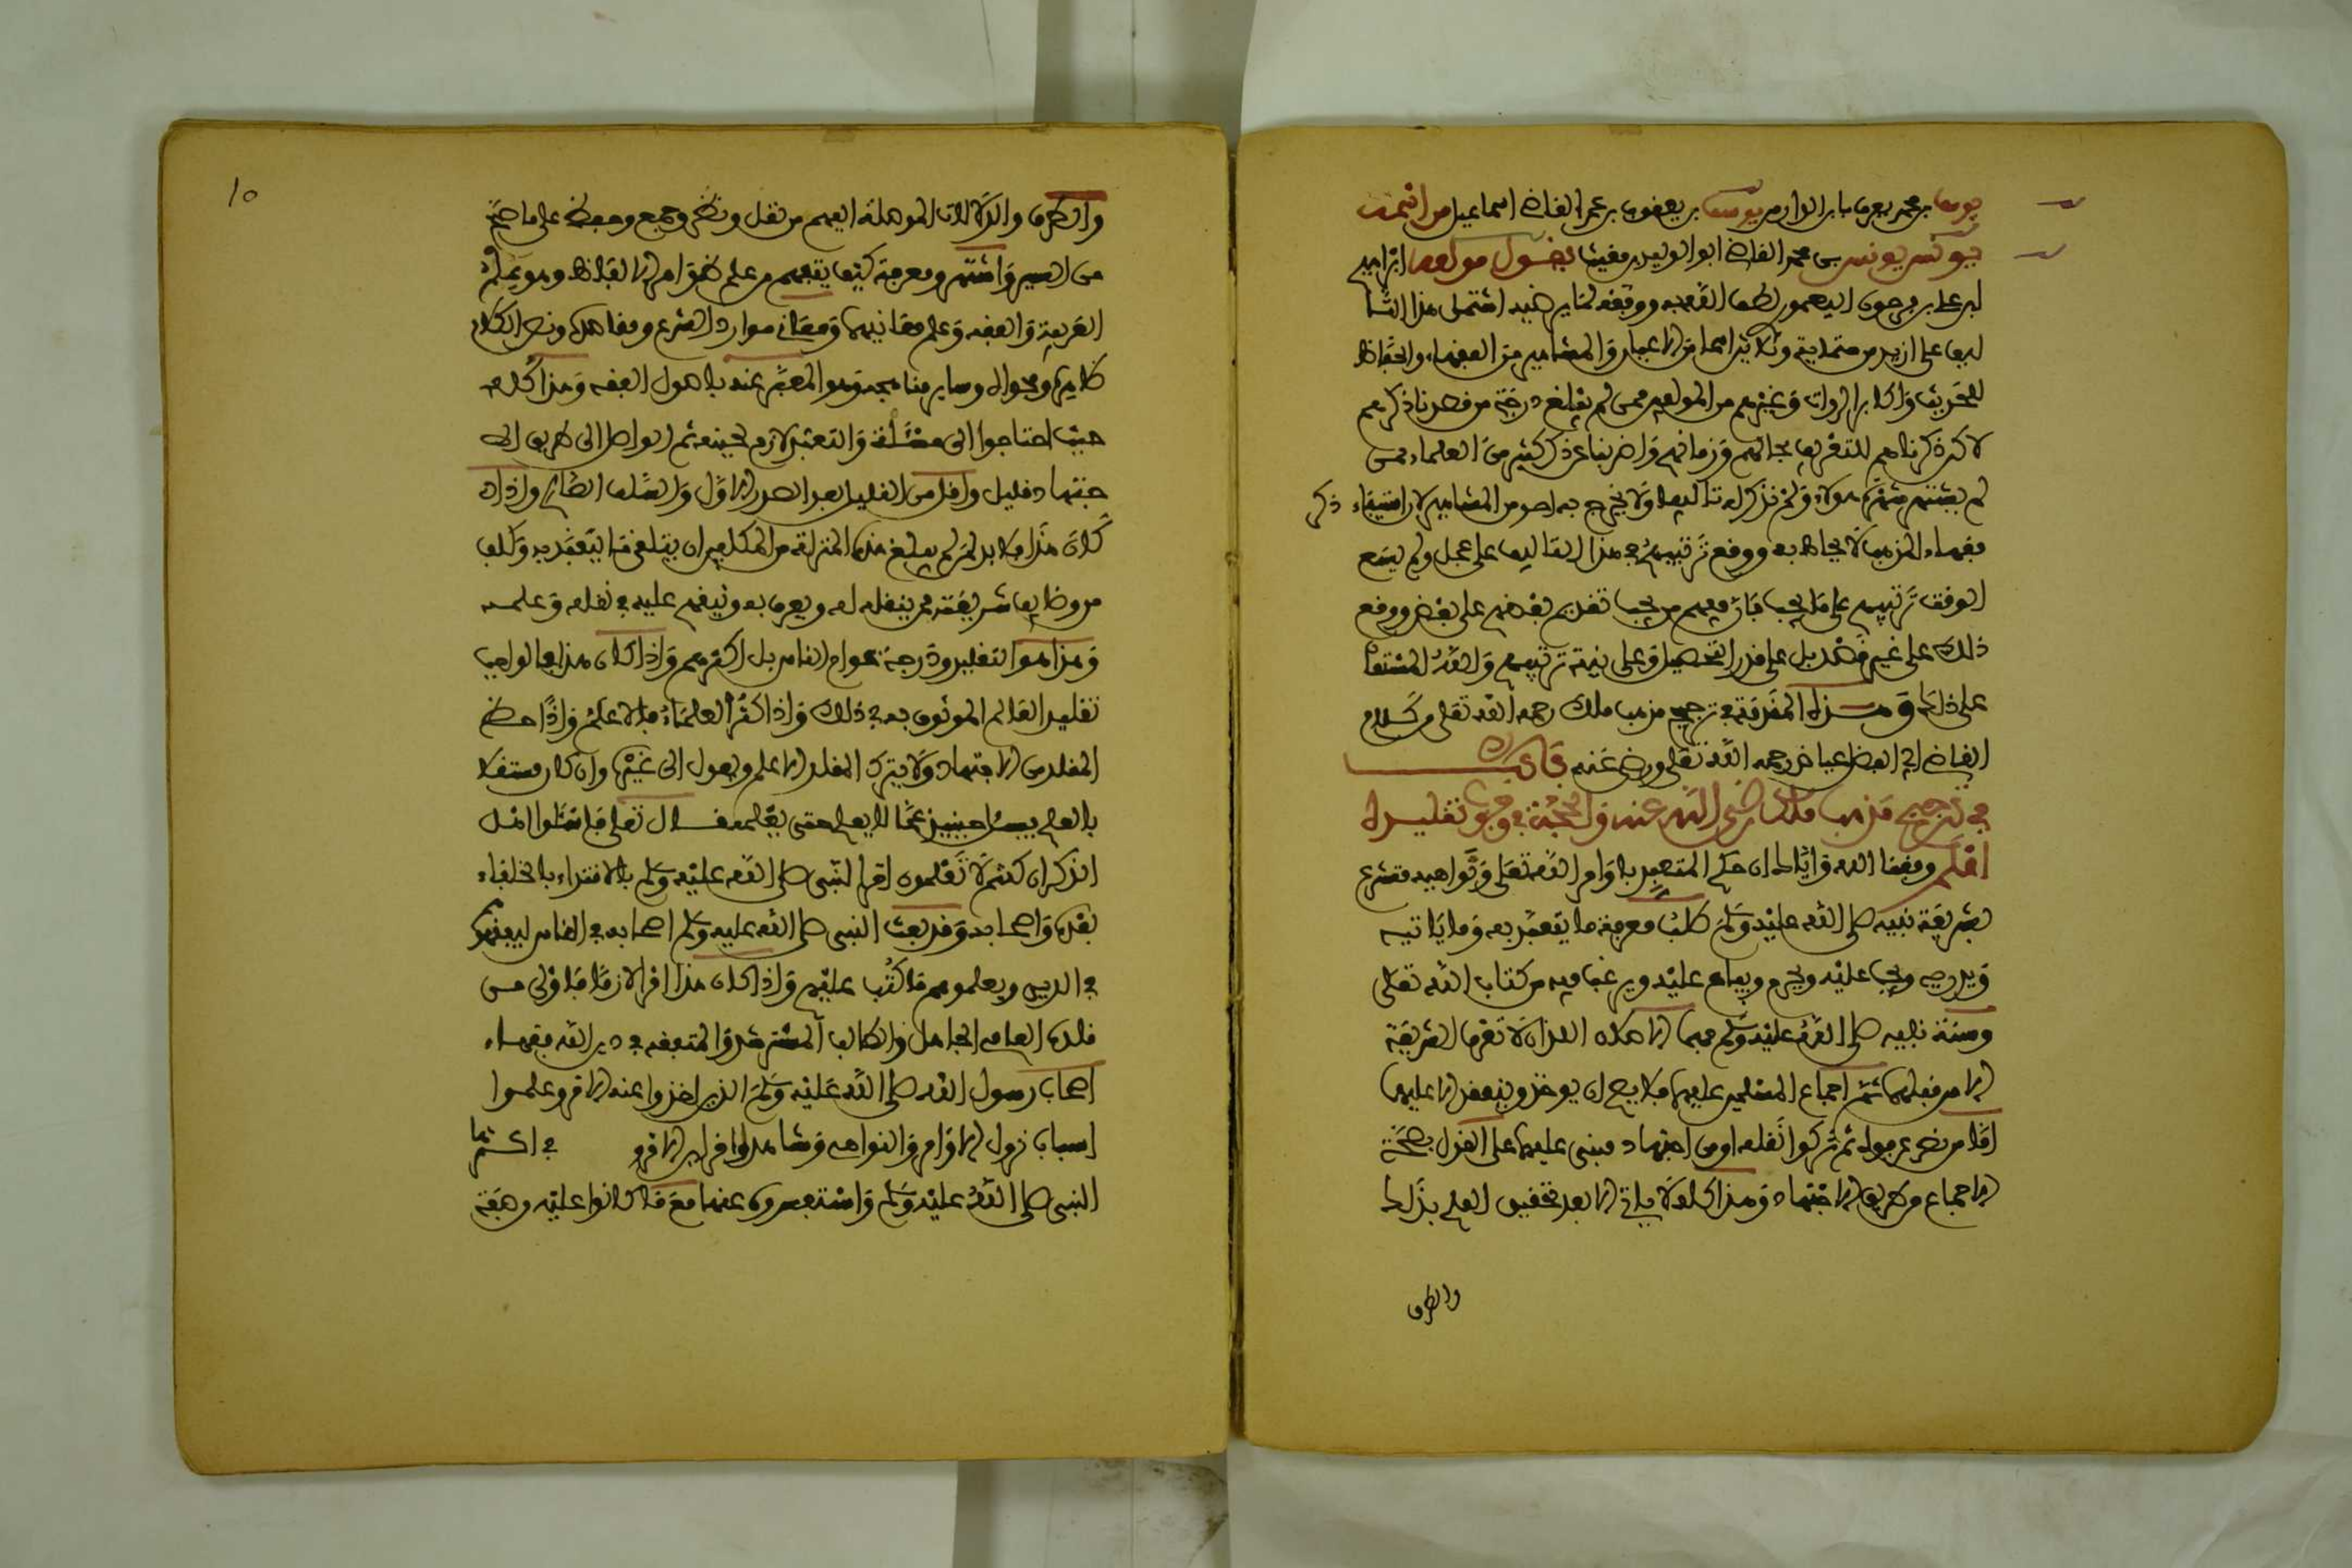 يوسف بن محمد يعرف بابن الدوار من يوسف بن يعقوب بن عمر القاضي اسماعيل من اسمه
يونس يونس بن محمد القاضي ابو الوليد بن مغيث يقول مولفه ابراهيم
بن علي بن فرحون اليعمري لطف الله به ووفقه لما يرضيه اشتمل هذا التا
ليف على ازيد من ستماية وثلاثين اسما من الاعيان والمشاهير من الفقهاء والحفاظ
للحديث واكابر الرواة وغيرهم من المولفين ممن لم يبلغ درجة من قصدنا ذكرهم
لاكن ذكرناهم للتعريف بحالهم وزمانهم واضربنا عن ذكر كثير من العلماء ممن
لم يشتهر شهرة هولاء ولم نذكر له تاليفا ولا يخرج به احد من المشاهير لان استيفاء ذكر
فقهاء المذهب لا يحاط به ووقع ترتيبهم في هذا التاليف على عجل ولم يسع
الوقت ترتيبهم على ما يجب فان فيهم من يجب تقديم بعضهم على بعض ووقع
ذلك على غير قصد بل على قدر التحصيل وعلى نية ترتيبهم والله المستعان
على ذلك وهذه المقدمة في ترجيح مذهب ملك رحمه الله تعلى من كلام
القاضي ابي الفضل عياض رحمه الله تعلى ورضي عنه باب
في ترجيح مذهب ملك رضي الله عنه والحجة في وجوب تقليده
اعلم وفقنا الله واياك ان حكم المتعبد باوامر الله تعلى ونواهيه متشرع
بشريعة نبيه صلى الله عليه وسلم طلب معرفة ما يتعبد به وما ياتيه
ويذره ويجب عليه ويحرم ويباح عليه ويرغب فيه من كتاب الله تعلى
وسنة نبيه صلى الله عليه وسلم فهما الاصلان اللذان لا تعرف الشريعة
الا من قبلهما ثم اجماع المسلمين عليهما فلا يصح ان يوخذ وينعقد الا عليهما
اما من نص عرفوه ثم تركوا نقله او من اجتهاد مبني عليهما على القول بصحة
الاجماع من طريق الاجتهاد وهذا كله لا ياتي الا بعد تحقيق العلم بذلك
والطرق
١٥
والطرق والالات الموصلة اليهم من نقل ونظر وجمع وحفظ على ما صح
من السير واشتهر ومعرفة كيف يتفهم من علم ظواهر الالفاظ وهو علم
العربية واللغة وعلم معانيها ومعاني موارد الشرع ومقاصده ونص الكلام
ظاهره وفحواه وساير مناهجه وهو المعبر عنه باصول الفقه وهذا كله
حيث احتاجوا الى مهلة والتعبد لازم لحينه ثم الواصل الى طريق الى
جتهاد قليل واقل من القليل بعد الصدر الاول والسلف الصالح واذا
كان هذا فلا بد لمن لم يبلغ هذه المنزلة من المكلفين ان يتلقى ما يتعبد به وكلف
من وظايف شريعته ممن ينقله له ويعرف به وثيقهم عليه في نقله وعلمه
وهذا هو التقليد ودرجة عوام الناس بل اكثرهم واذا كان هذا فالواجب
تقليد العالم الموثوق به في ذلك واذا كثر العلماء فالاعلم واذا حظ
المقلد من الاجتهاد ولا يترك المقلد الاعلم ويعدل الى غيره وان كان مشتغلا
بالعلم يسئل حينيذ عما لا يعلم حتى يعلمه قال تعلى فاسئلوا اهل
الذكر ان كنتم لا تعلمون امر النبي صلى الله عليه وسلم بالاقتداء بالخلفاء
بعده واصحابه وقد بعث النبي صلى الله عليه وسلم اصحابه في الناس ليفقهوهم
في الدين ويعلموهم ما كتب عليهم واذا كان هذا امرا لازما فاولى من
قلده العامي الجاهل والطالب المسترشد والمتفقه في دين الله فقهاء
اصحاب رسول الله صلى الله عليه وسلم الذين اخذوا عنه الامر وعلموا
اسباب نزول الاوامر والنواهي وشاهدوا قراين الامور في اكثرها
النبي صلى الله عليه وسلم واستفسروه عنها مع ما كانوا عليه وصفة